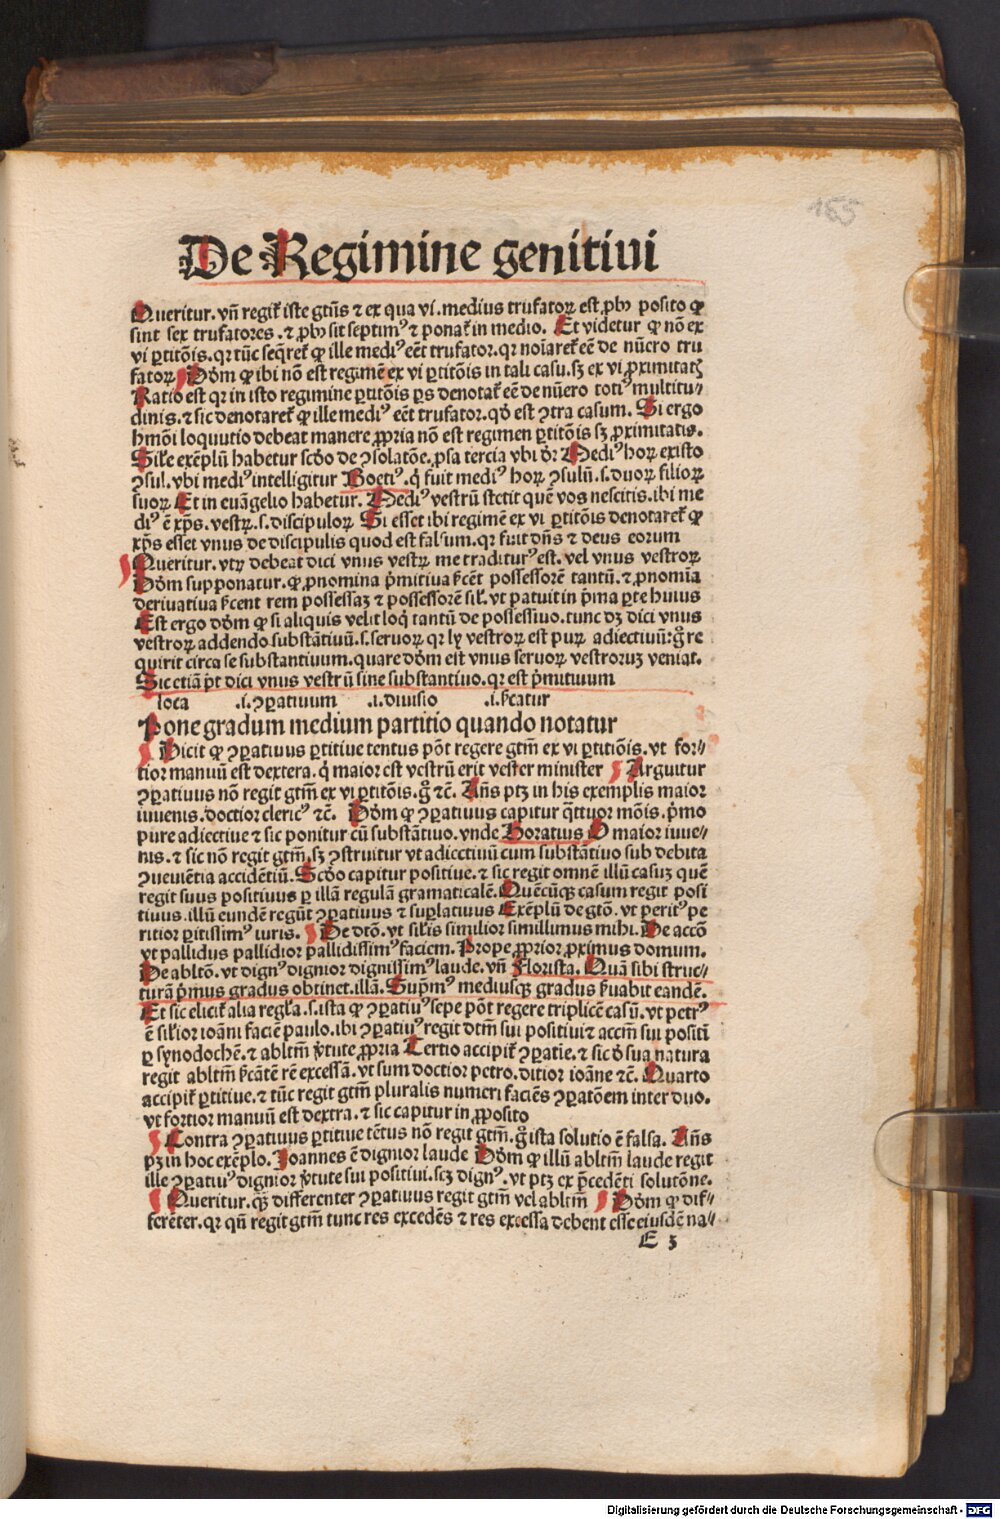 165
De Regimine genitiui
Queritur. vñ regiť iste gtũs ⁊ ex qua vi. medius trufatoꝝ est. ꝓbꝫ posito ꝙ
sint sex trufatores. ⁊ ꝓbꝫ sit septimꝰ ⁊ ponať in medio. Et videtur ꝙ nõ ex
vi ꝑtitõis. qꝛ tũc seq̃reť ꝙ ille mediꝰ eẽt trufator. qꝛ noĩareť eẽ de nũero tru
fatoꝝ Dõm ꝙ ibi nõ est regimẽ ex vi ꝑtitõis in tali casu. sꝫ ex vi ꝓximitatꝭ
Ratio est qꝛ in isto regimine ꝑtitõis ꝑs denotať eẽ de nũero totiꝰ multitu⸗
dinis. ⁊ sic denotareť ꝙ ille mediꝰ eẽt trufator. qď est ꝯtra casum. Si ergo
hmõi loquutio debeat manere ꝓpria nõ est regimen ꝑtitõis sꝫ ꝓximitatis.
Siľe exẽplũ habetur scďo de ꝯsolatõe. ꝓsa tercia vbi ďr Mediꝰ hoꝝ existo
ꝯsul. vbi mediꝰ intelligitur Boetiꝰ. q̇ fuit mediꝰ hoꝝ ꝯsulũ. s. duoꝝ filioꝝ
suoꝝ Et in euãgelio habetur. Mediꝰ vestrũ stetit quẽ vos nescitis. ibi me
diꝰ ẽ xp̃s. vestꝝ. s. discipuloꝝ Si esset ibi regimẽ ex vi ꝑtitõis denotareť ꝙ
xp̃s esset vnus de discipulis quod est falsum. qꝛ fuit dñs ⁊ deus eorum
Queritur. vtꝝ debeat dici vnus vestꝝ me traditurꝰ est. vel vnus vestroꝝ
Dõm supponatur. ꝙ ꝓnomina p̃mitiua ẜcẽt possessorẽ tantũ. ⁊ ꝓnomĩa
deriuatiua ẜcent rem possessaꝫ ⁊ possessorẽ siľ. vt patuit in p̃ma ꝑte huius
Est ergo dõm ꝙ si aliquis velit loq̇ tantũ de possessiuo. tunc dꝫ dici vnus
vestroꝝ addendo substãtiuũ. s. seruoꝝ qꝛ lꝫ vestroꝝ est puꝝ adiectiuũ: g̊ re
quirit circa se substantiuum. quare dõm est vnus seruoꝝ vestroruꝫ veniat.
Sic etiã p̃t dici vnus vestrũ sine substantiuo. qꝛ est p̃mitiuum
loca .i. ꝯꝑatiuum .i. diuisio .i. ẜcatur
Pone gradum medium partitio quando notatur
Dicit ꝙ ꝯꝑatiuus ꝑtitiue tentus põt regere gtm̃ ex vi ꝑtitiõis. vt for⸗
tior manuũ est dextera. q̇ maior est vestrũ erit vester minister Arguitur
ꝯꝑatiuus nõ regit gtm̃ ex vi ꝑtitõis. g̊ ⁊c̃. Añs ptꝫ in his exemplis maior
iuuenis. doctior clericꝰ ⁊c̃. Dõm ꝙ ꝯꝑatiuus capitur q̃ttuor mõis. p̃mo
pure adiectiue ⁊ sic ponitur cũ substãtiuo. vnde Horatius O maior iuue⸗
nis. ⁊ sic nõ regit gtm̃. sꝫ ꝯstruitur vt adiectiuũ cum substãtiuo sub debita
ꝯueniẽtia accidẽtiũ. Scďo capitur positiue. ⁊ sic regit omnẽ illũ casuꝫ quẽ
regit suus positiuus ꝑ illã regulã gramaticalẽ. Quẽcũqꝫ casum regit posi
tiuus. illũ eundẽ regũt ꝯꝑatiuus ⁊ suꝑlatiuus Exẽplũ de gtõ. vt peritꝰ pe
ritior ꝑitissimꝰ iuris. De dtõ. vt siľis similior simillimus mihi. De accõ
vt pallidus pallidior pallidissimꝰ faciem. Prope ꝓprior ꝓximus domum.
De abltõ. vt dignꝰ dignior dignissimꝰ laude. vñ Florista. Quã sibi struc⸗
turã p̃mus gradus obtinet. illã. Supm̃ꝰ mediusqꝫ gradus ẜuabit eandẽ.
Et sic eliciť alia regľa. s. ista ꝙ ꝯꝑatiuꝰ sepe põt regere triplicẽ casũ. vt petrꝰ
ẽ siľior ioãni faciẽ paulo. ibi ꝯꝑatiuꝰ regit dtm̃ sui positiui ⁊ accm̃ sui positi
ꝑ sẏnodochẽ. ⁊ abltm̃ v̓tute ꝓpria Tertio accipiť ꝯꝑatie. ⁊ sic ď sua natura
regit abltm̃ ẜcãtẽ rẽ excessã. vt sum doctior petro. ditior ioãne ⁊c̃. Quarto
accipiť ꝑtitiue. ⁊ tũc regit gtm̃ pluralis numeri faciẽs ꝯꝑatõem inter duo.
vt fortior manuũ est dextra. ⁊ sic capitur in ꝓposito
Contra ꝯꝑatiuus ꝑtitiue tẽtus nõ regit gtm̃. g̊ ista solutio ẽ falsa. Añs
pꝫ in hoc exẽplo. Joannes ẽ dignior laude Dõm ꝙ illũ abltm̃ laude regit
ille ꝯꝑatiuꝰ dignior v̓tute sui positiui. scꝫ dignꝰ. vt ptꝫ ex p̃cedẽti solutõne.
Queritur. qꝫ differenter ꝯꝑatiuus regit gtm̃ vel abltm̃ Dõm ꝙ dif⸗
ferẽter. qꝛ qñ regit gtm̃ tunc res excedẽs ⁊ res excessa debent esse eiusdẽ na⸗
E 3
Digitalisierung gefördert durch die Deutsche Forschungsgemeinschaft - DFG